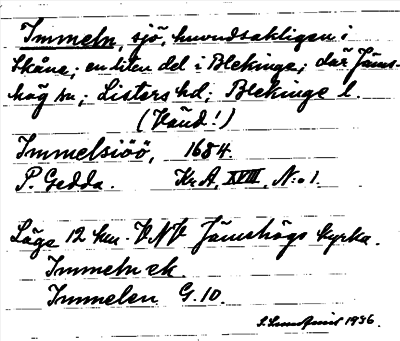 Immeln, sjö, huvudsakligen i
Skåne; en liten del i Blekinge; där Jäms-
hög sn; Listers hd; Blekinge l.
(Vänd!)
Immelsiöö, 1684.
P. Gedda. Kr.A, XVIII, N:o 1.
Läge 12 km. VNV Jämshögs kyrka.
Immeln ek.
Immelen G. 10.
1936.